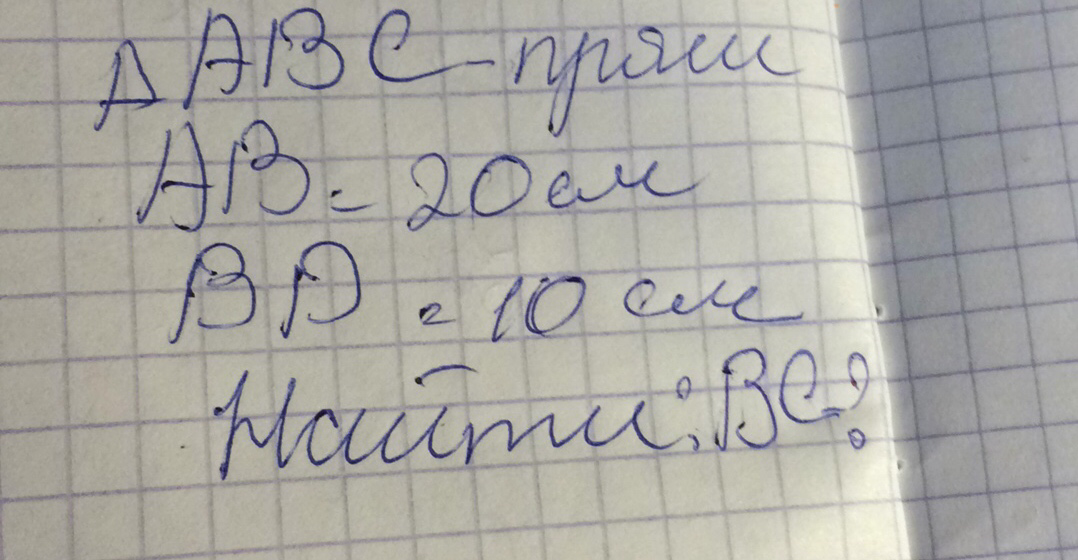 Δ ABC - прям
AB = 20 см
BD = 10 см
Найти: BC?